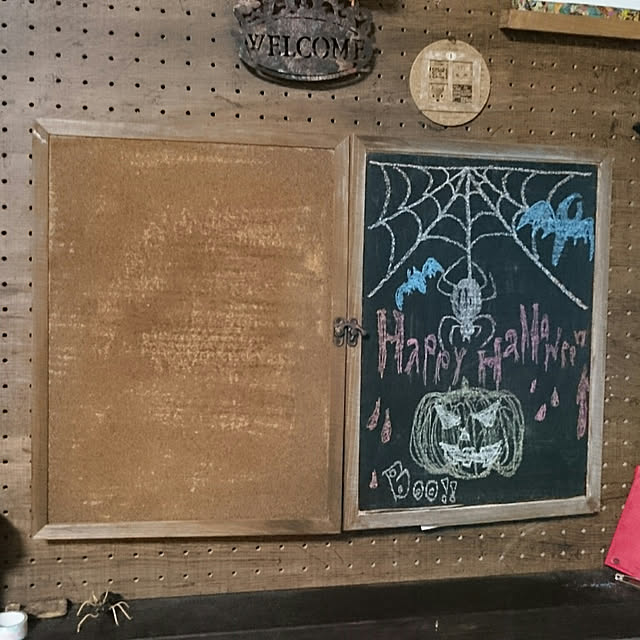 WELCOME
Happy Halloween
Boo!!